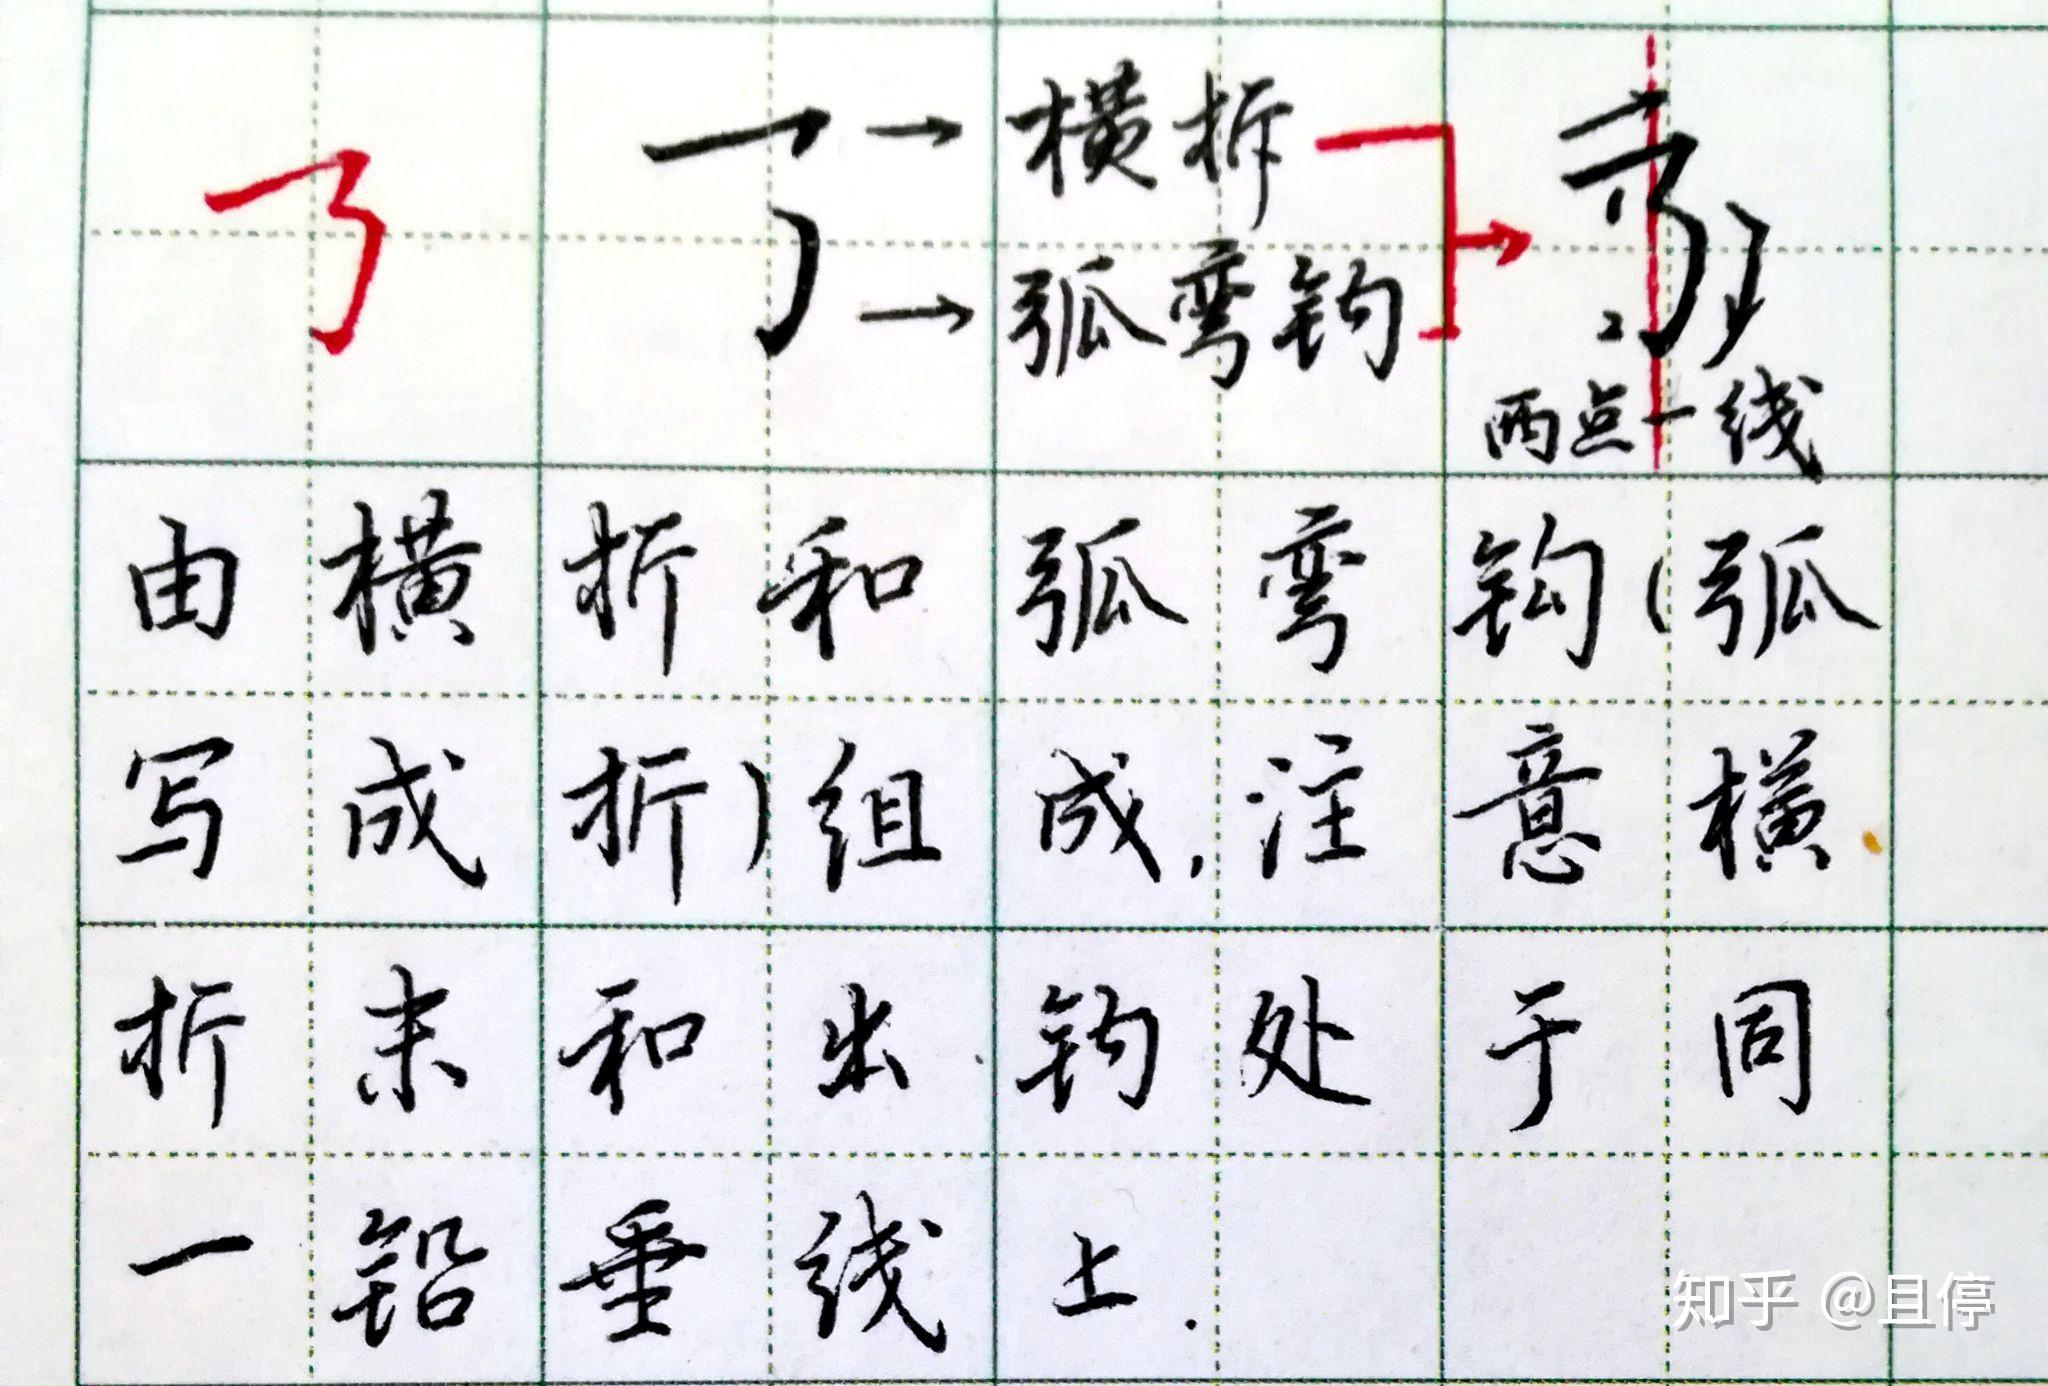 横拆
弧弯钩
两点一线
由横折和弧弯钩(弧
写成折)组成,注意横
折末和出钩处于同
一铅垂线上.
知乎 @且停